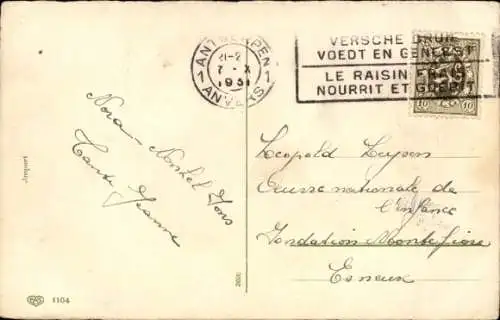 ANTWERPEN
21-2
7 - X
1931
1 1
ANVERS
VERSCHE DRUIF
VOEDT EN GENEEST
LE RAISIN FRAIS
NOURRIT ET GUERIT
10 10
Nora - Nonkel Fons
Tante Jeanne
Leopold Leysen
Œuvre nationale de
l'enfance
Fondation Montefiore
Esneux
1104